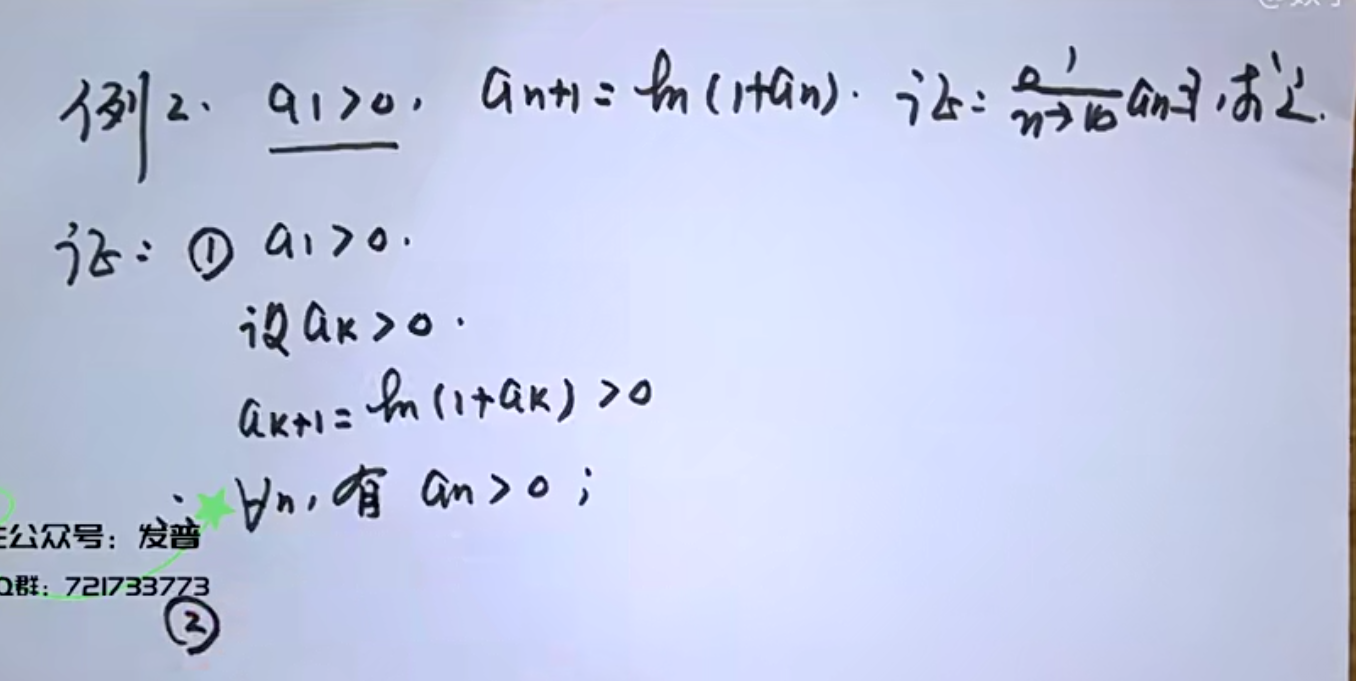 例2. a₁>0, aₙ₊₁=ln(1+aₙ). 证: lim n→∞ aₙ∃, 求之.
证: ① a₁>0.
设 aₖ>0.
aₖ₊₁=ln(1+aₖ)>0
∴ ∀n, 有 aₙ>0;
公众号: 发普
Q群: 721733773
②